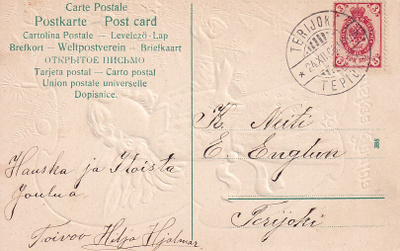 Carte Postale
Postkarte – Post card
Cartolina Postale – Levelező-Lap
Brefkort – Weltpostverein – Briefkaart
ОТКРЫТОЕ ПИСЬМО
Tarjeta postal – Carto postal
Union postale universelle
Dopisnice.
TERIJOKI
24.XII
3 3
K. Neiti
E. Englun
Terijoki
Hauska ja Iloista
Joulua
Toivoo Hilja Hjalmar